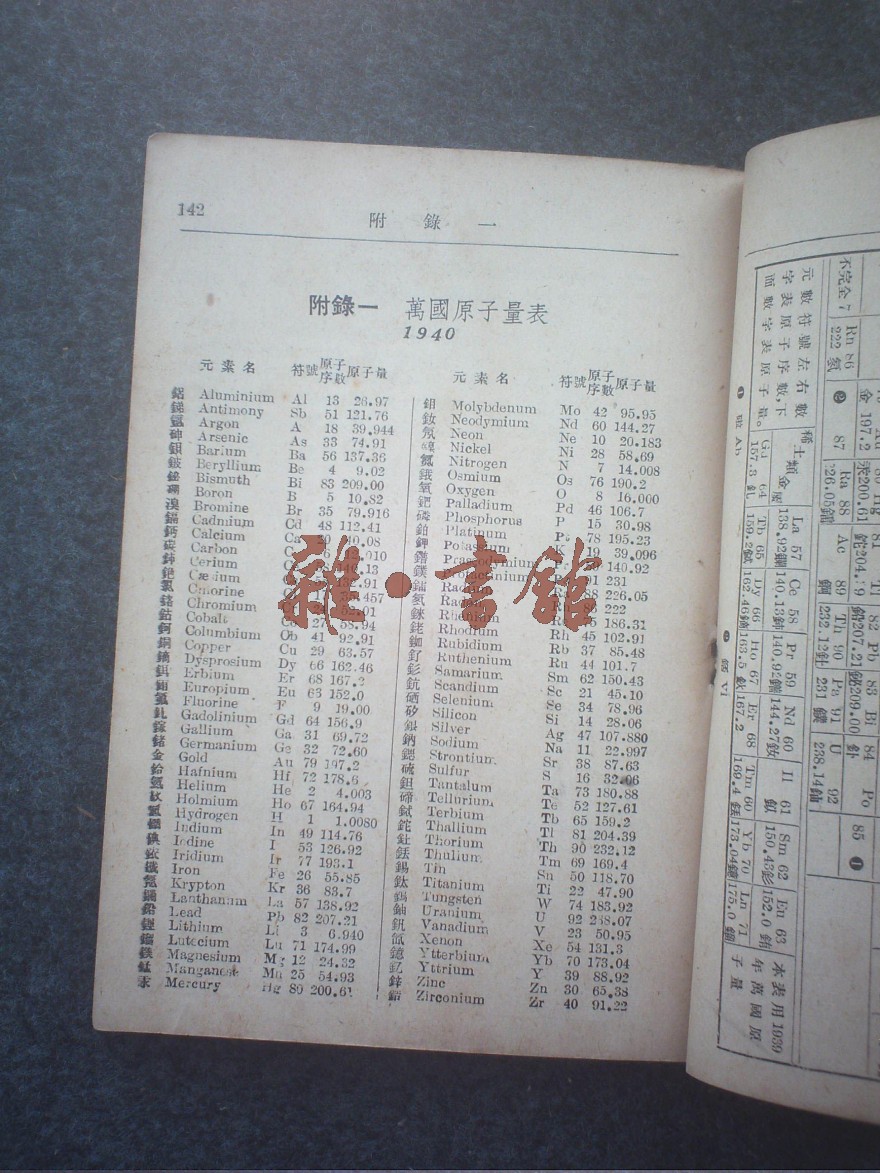 142
附 錄 一
附錄一 萬國原子量表
1940
元素名 符號 原子序數 原子量
鋁 Aluminium Al 13 26.97
銻 Antimony Sb 51 121.76
氬 Argon A 18 39.944
砷 Arsenic As 33 74.91
鋇 Barium Ba 56 137.36
鈹 Beryllium Be 4 9.02
鉍 Bismuth Bi 83 209.00
硼 Boron B 5 10.82
溴 Bromine Br 35 79.916
鎘 Cadmium Cd 48 112.41
鈣 Calcium Ca
碳 Carbon
鈰 Cerium
銫 Cæsium
氯
鉻 Chromium
鈷 Cobalt 58.94
鈳 Columbium Cb 41 92.91
銅 Copper Cu 29 63.57
鏑 Dysprosium Dy 66 162.46
鉺 Erbium Er 68 167.2
Europium Eu 63 152.0
氟 Fluorine F 9 19.00
釓 Gadolinium Gd 64 156.9
鎵 Gallium Ga 31 69.72
鍺 Germanium Ge 32 72.60
金 Gold Au 79 197.2
鉿 Hafnium Hf 72 178.6
氦 Helium He 2 4.003
鈥 Holmium Ho 67 164.94
氫 Hydrogen H 1 1.0080
Indium In 49 114.76
碘 Iodine I 53 126.92
銥 Iridium Ir 77 193.1
鐵 Iron Fe 26 55.85
氪 Krypton Kr 36 83.7
Lanthanum La 57 138.92
鉛 Lead Pb 82 207.21
鋰 Lithium Li 3 6.940
Lutecium Lu 71 174.99
鎂 Magnesium Mg 12 24.32
錳 Manganese Mn 25 54.93
汞 Mercury Hg 80 200.61
元素名 符號 原子序數 原子量
鉬 Molybdenum Mo 42 95.95
釹 Neodymium Nd 60 144.27
氖 Neon Ne 10 20.183
Nickel Ni 28 58.69
氮 Nitrogen N 7 14.008
鋨 Osmium Os 76 190.2
氧 Oxygen O 8 16.000
鈀 Palladium Pd 46 106.7
磷 Phosphorus P 15 30.98
鉑 Platinum Pt 78 195.23
鉀 Potassium K 19 39.096
鐠 140.92
鏷 91 231
鐳 226.05
氡 222
錸 186.31
銠 Rhodium Rh 45 102.91
銣 Rubidium Rb 37 85.48
釕 Ruthenium Ru 44 101.7
釤 Samarium Sm 62 150.43
鈧 Scandium Sc 21 45.10
硒 Selenium Se 34 78.96
矽 Silicon Si 14 28.06
銀 Silver Ag 47 107.880
鈉 Sodium Na 11 22.997
鍶 Strontium Sr 38 87.63
硫 Sulfur S 16 32.06
鉭 Tantalum Ta 73 180.88
碲 Tellurium Te 52 127.61
Terbium Tb 65 159.2
鉈 Thallium Tl 81 204.39
釷 Thorium Th 90 232.12
銩 Thulium Tm 69 169.4
錫 Tin Sn 50 118.70
鈦 Titanium Ti 22 47.90
鎢 Tungsten W 74 183.92
鈾 Uranium U 92 238.07
釩 Vanadium V 23 50.95
氙 Xenon Xe 54 131.3
鐿 Ytterbium Yb 70 173.04
釔 Yttrium Y 39 88.92
鋅 Zinc Zn 30 65.38
鋯 Zirconium Zr 40 91.22
雜·書館
元數符號左右數
字表原子序數,下
面數字表原子量。
不完全 7
Rn 86
222 氡
87
Ra 88
Ac 89
Th 90
232.12 釷
Pa 91
231 鏷
U 92
238.14 鈾
Pb 82
207.21
Bi 83
209.00
Po 84
85
稀土類金屬
La 57
138.92 鑭
Ce 58
140.13 鈰
Pr 59
140.92 鐠
Nd 60
144.27 釹
Il 61
Sm 62
150.43 釤
Eu 63
152.0
Gd 64
157.3 釓
Tb 65
159.2
Dy 66
162.46 鏑
Ho 67
163.5 鈥
Er 68
167.2
169.4 銩
Yb 70
173.04 鐿
71
175.0
本表用 1939
年萬國原
子量